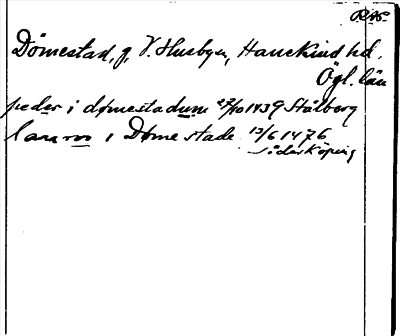 RAP.
Dömestad, g, V. Husbyn, Hanekind hd.
Ögl. län
peder i dømestadum 27/10 1439 Stålborg
lauros i Døme stade 13/6 1476
Söderköping